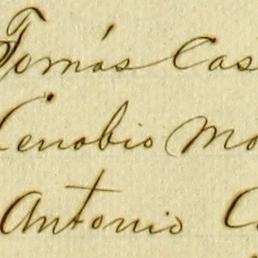 Tomás Cas
Cenobio Mo
Antonio C